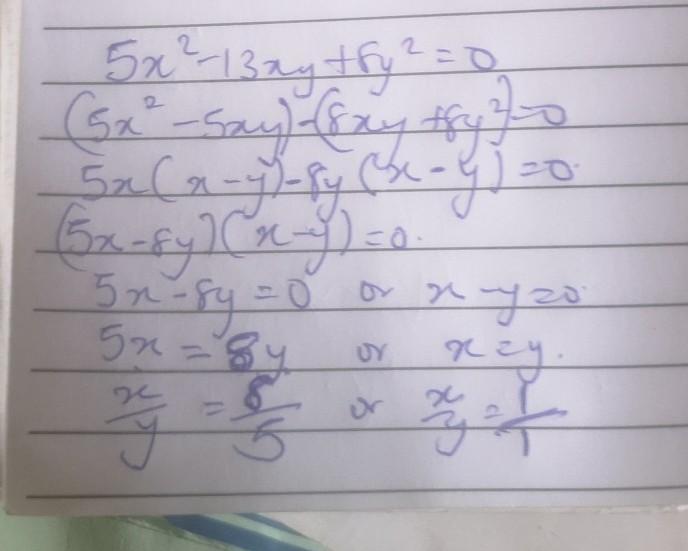 5x² - 13xy + 8y² = 0
(5x² - 5xy) - (8xy + 8y²) = 0
5x(x - y) - 8y(x - y) = 0
(5x - 8y)(x - y) = 0.
5x - 8y = 0 or x - y = 0
5x = 8y or x = y.
x/y = 8/5 or x/y = 1/1